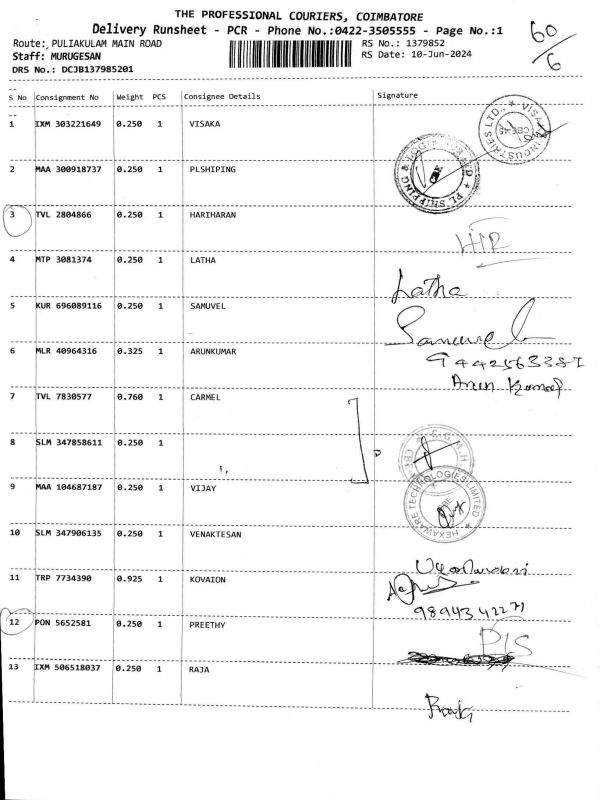 THE PROFESSIONAL COURIERS, COIMBATORE
Delivery Runsheet - PCR - Phone No.:0422-3505555 - Page No.:1
60/6
Route: PULIAKULAM MAIN ROAD
RS No.: 1379852
Staff: MURUGESAN
RS Date: 10-Jun-2024
DRS No.: DCJB137985201
S No Consignment No Weight PCS Consignee Details Signature
1 IXM 303221649 0.250 1 VISAKA
INDUSTRIES LTD., * VISAKA
CBE-45
2 MAA 300918737 0.250 1 PLSHIPING
* PL SHIPPING &
3 TVL 2804866 0.250 1 HARIHARAN
4 MTP 3081374 0.250 1 LATHA
Latha
5 KUR 696089116 0.250 1 SAMUVEL
Samuvel
6 MLR 40964316 0.325 1 ARUNKUMAR
9442563381
Arun Kumar
7 TVL 7830577 0.760 1 CARMEL
8 SLM 347858611 0.250 1
C.G.M.H
CBE
9 MAA 104687187 0.250 1 VIJAY
HEXAWARE TECHNOLOGIES LIMITED
CBE
10 SLM 347906135 0.250 1 VENAKTESAN
11 TRP 7734390 0.925 1 KOVAION
9894342271
12 PON 5652581 0.250 1 PREETHY
P/S
13 IXM 506518037 0.250 1 RAJA
Raja